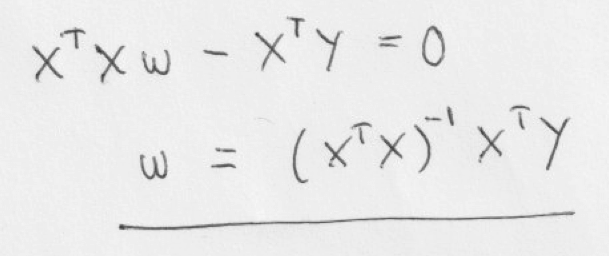 XᵀXw - XᵀY = 0
w = (XᵀX)⁻¹XᵀY